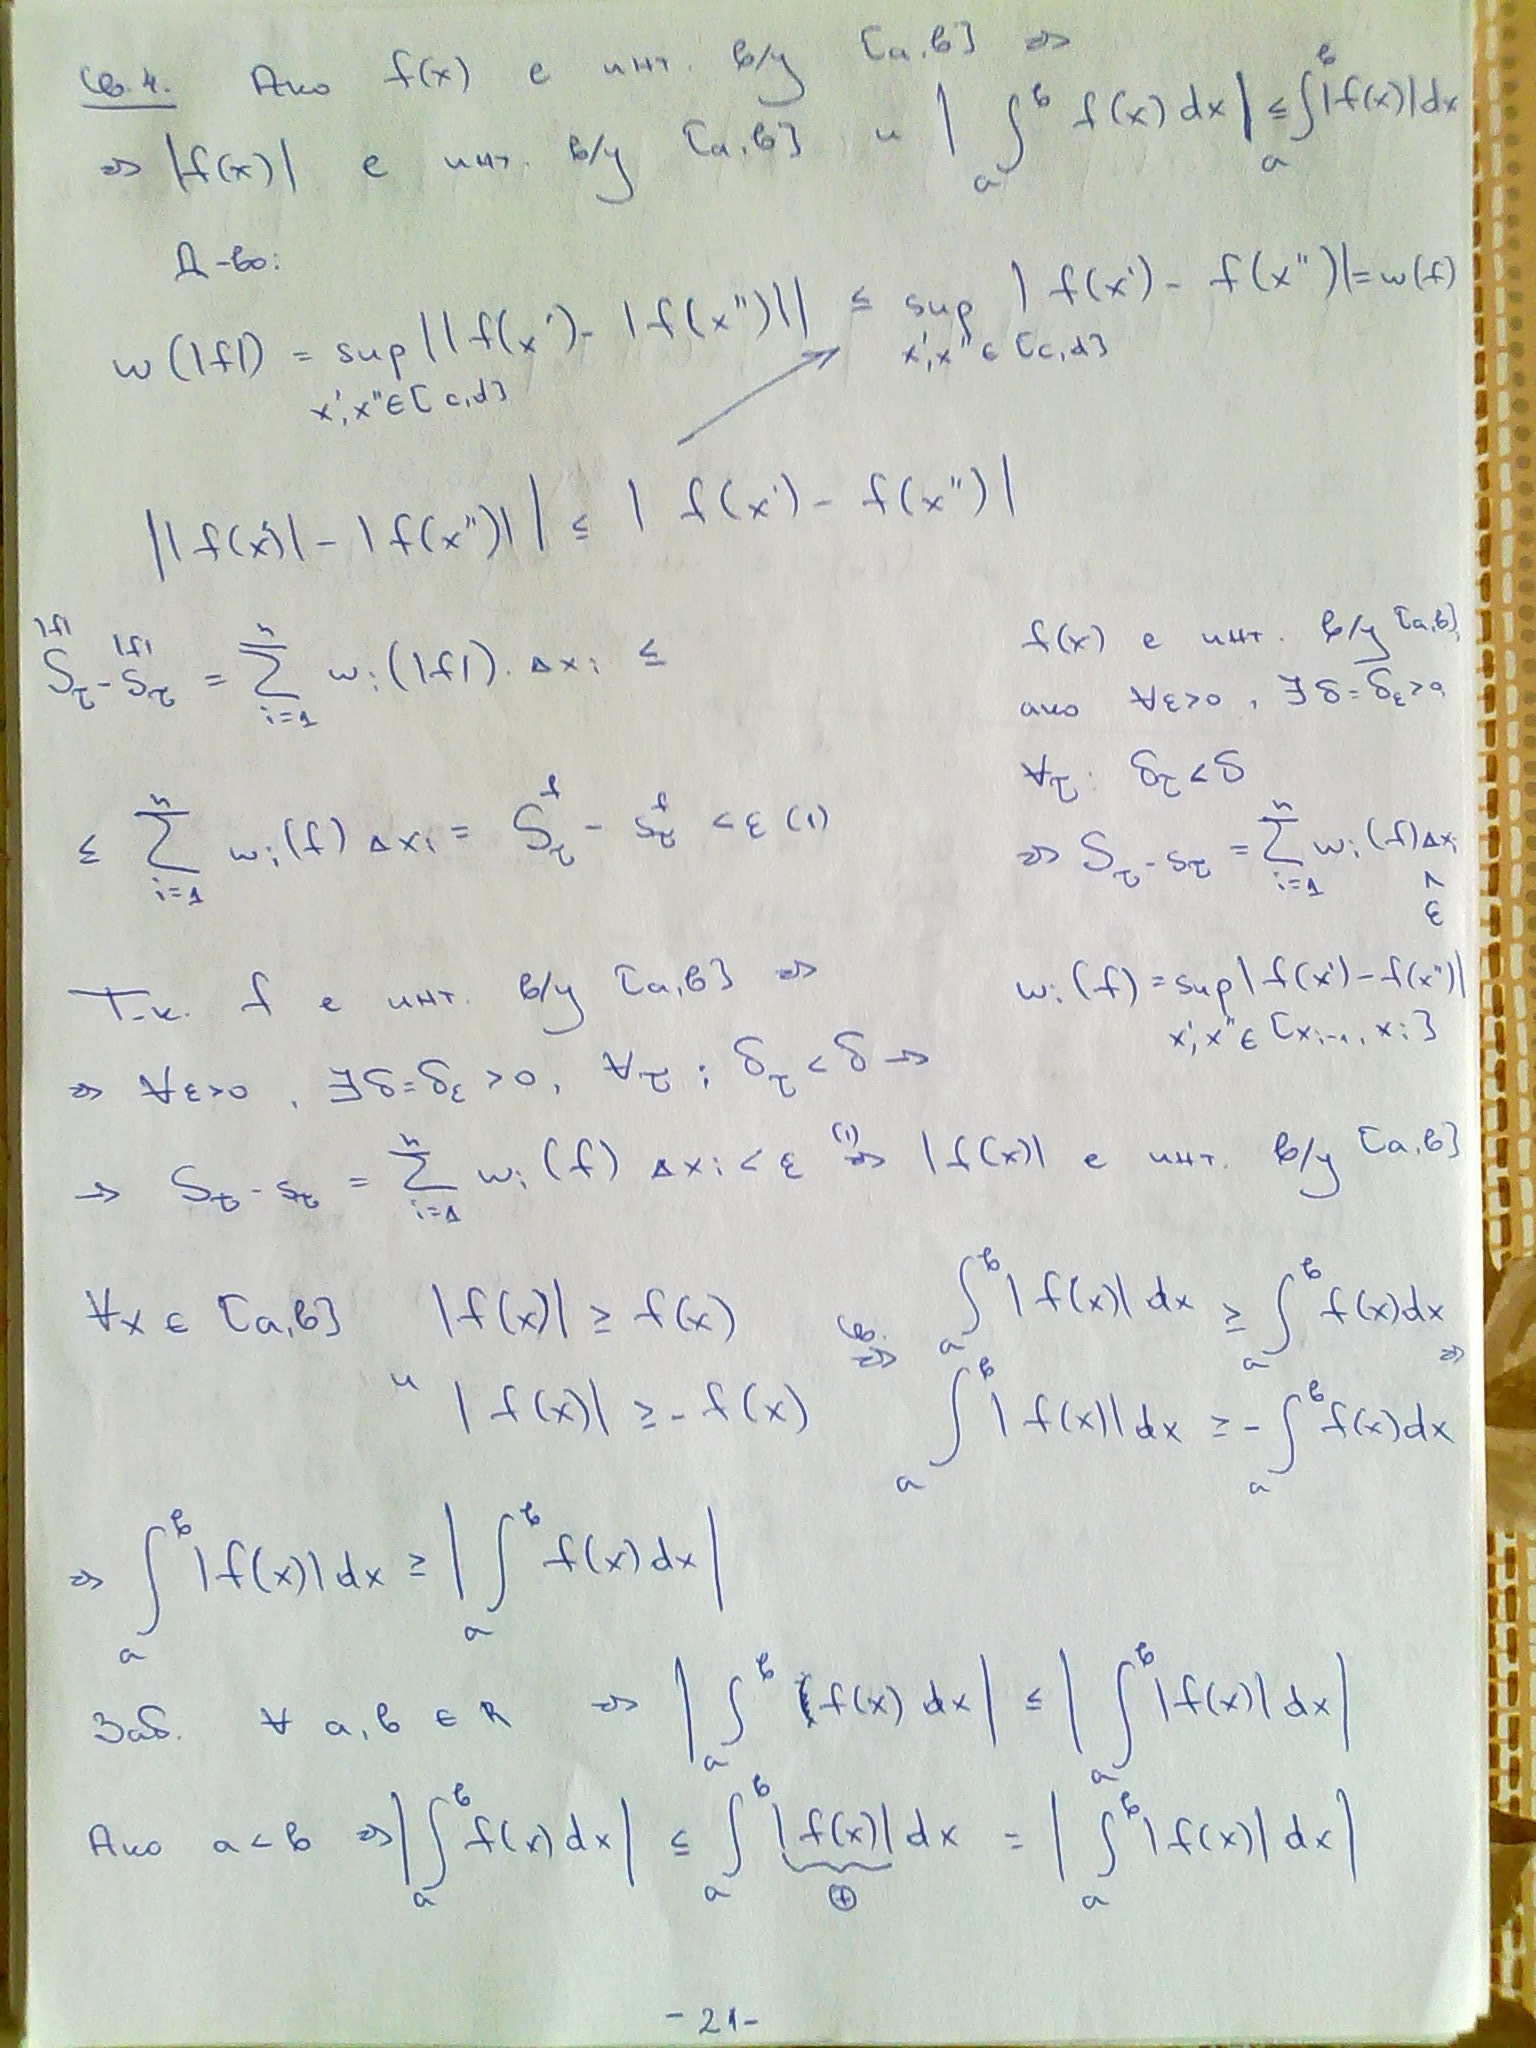 Св.4. Ако f(x) е инт. в/у [a,b] ⇒
⇒ |f(x)| е инт. в/у [a,b] и |∫_a^b f(x) dx| ≤ ∫_a^b |f(x)| dx
Д-во:
w(|f|) = sup_{x',x''∈[c,d]} ||f(x')- |f(x'')|| ≤ sup_{x',x''∈[c,d]} |f(x') - f(x'')| = w(f)
||f(x')| - |f(x'')|| ≤ |f(x') - f(x'')|
S_τ^{|f|} - s_τ^{|f|} = ∑_{i=1}^n w_i(|f|).Δx_i ≤
≤ ∑_{i=1}^n w_i(f) Δx_i = S_τ^f - s_τ^f < ε (1)
f(x) е инт. в/у [a,b],
ако ∀ε>0, ∃δ=δ_ε>0,
∀τ: δ_τ<δ
⇒ S_τ - s_τ = ∑_{i=1}^n w_i(f)Δx_i
< ε
w_i(f) = sup_{x',x''∈[x_{i-1}, x_i]} |f(x') - f(x'')|
Т.к. f е инт. в/у [a,b] ⇒
⇒ ∀ε>0, ∃δ=δ_ε>0, ∀τ; δ_τ<δ →
→ S_τ - s_τ = ∑_{i=1}^n w_i(f) Δx_i < ε ⇒^{(1)} |f(x)| е инт. в/у [a,b]
∀x ∈ [a,b] |f(x)| ≥ f(x) св. ⇒ ∫_a^b |f(x)| dx ≥ ∫_a^b f(x)dx ⇒
и |f(x)| ≥ - f(x) ∫_a^b |f(x)| dx ≥ -∫_a^b f(x)dx
⇒ ∫_a^b |f(x)| dx ≥ |∫_a^b f(x)dx|
Заб. ∀ a,b ∈ R ⇒ |∫_a^b f(x) dx| ≤ |∫_a^b |f(x)| dx|
Ако a<b ⇒ |∫_a^b f(x) dx| ≤ ∫_a^b |f(x)| dx = |∫_a^b |f(x)| dx|
⊕
-21-